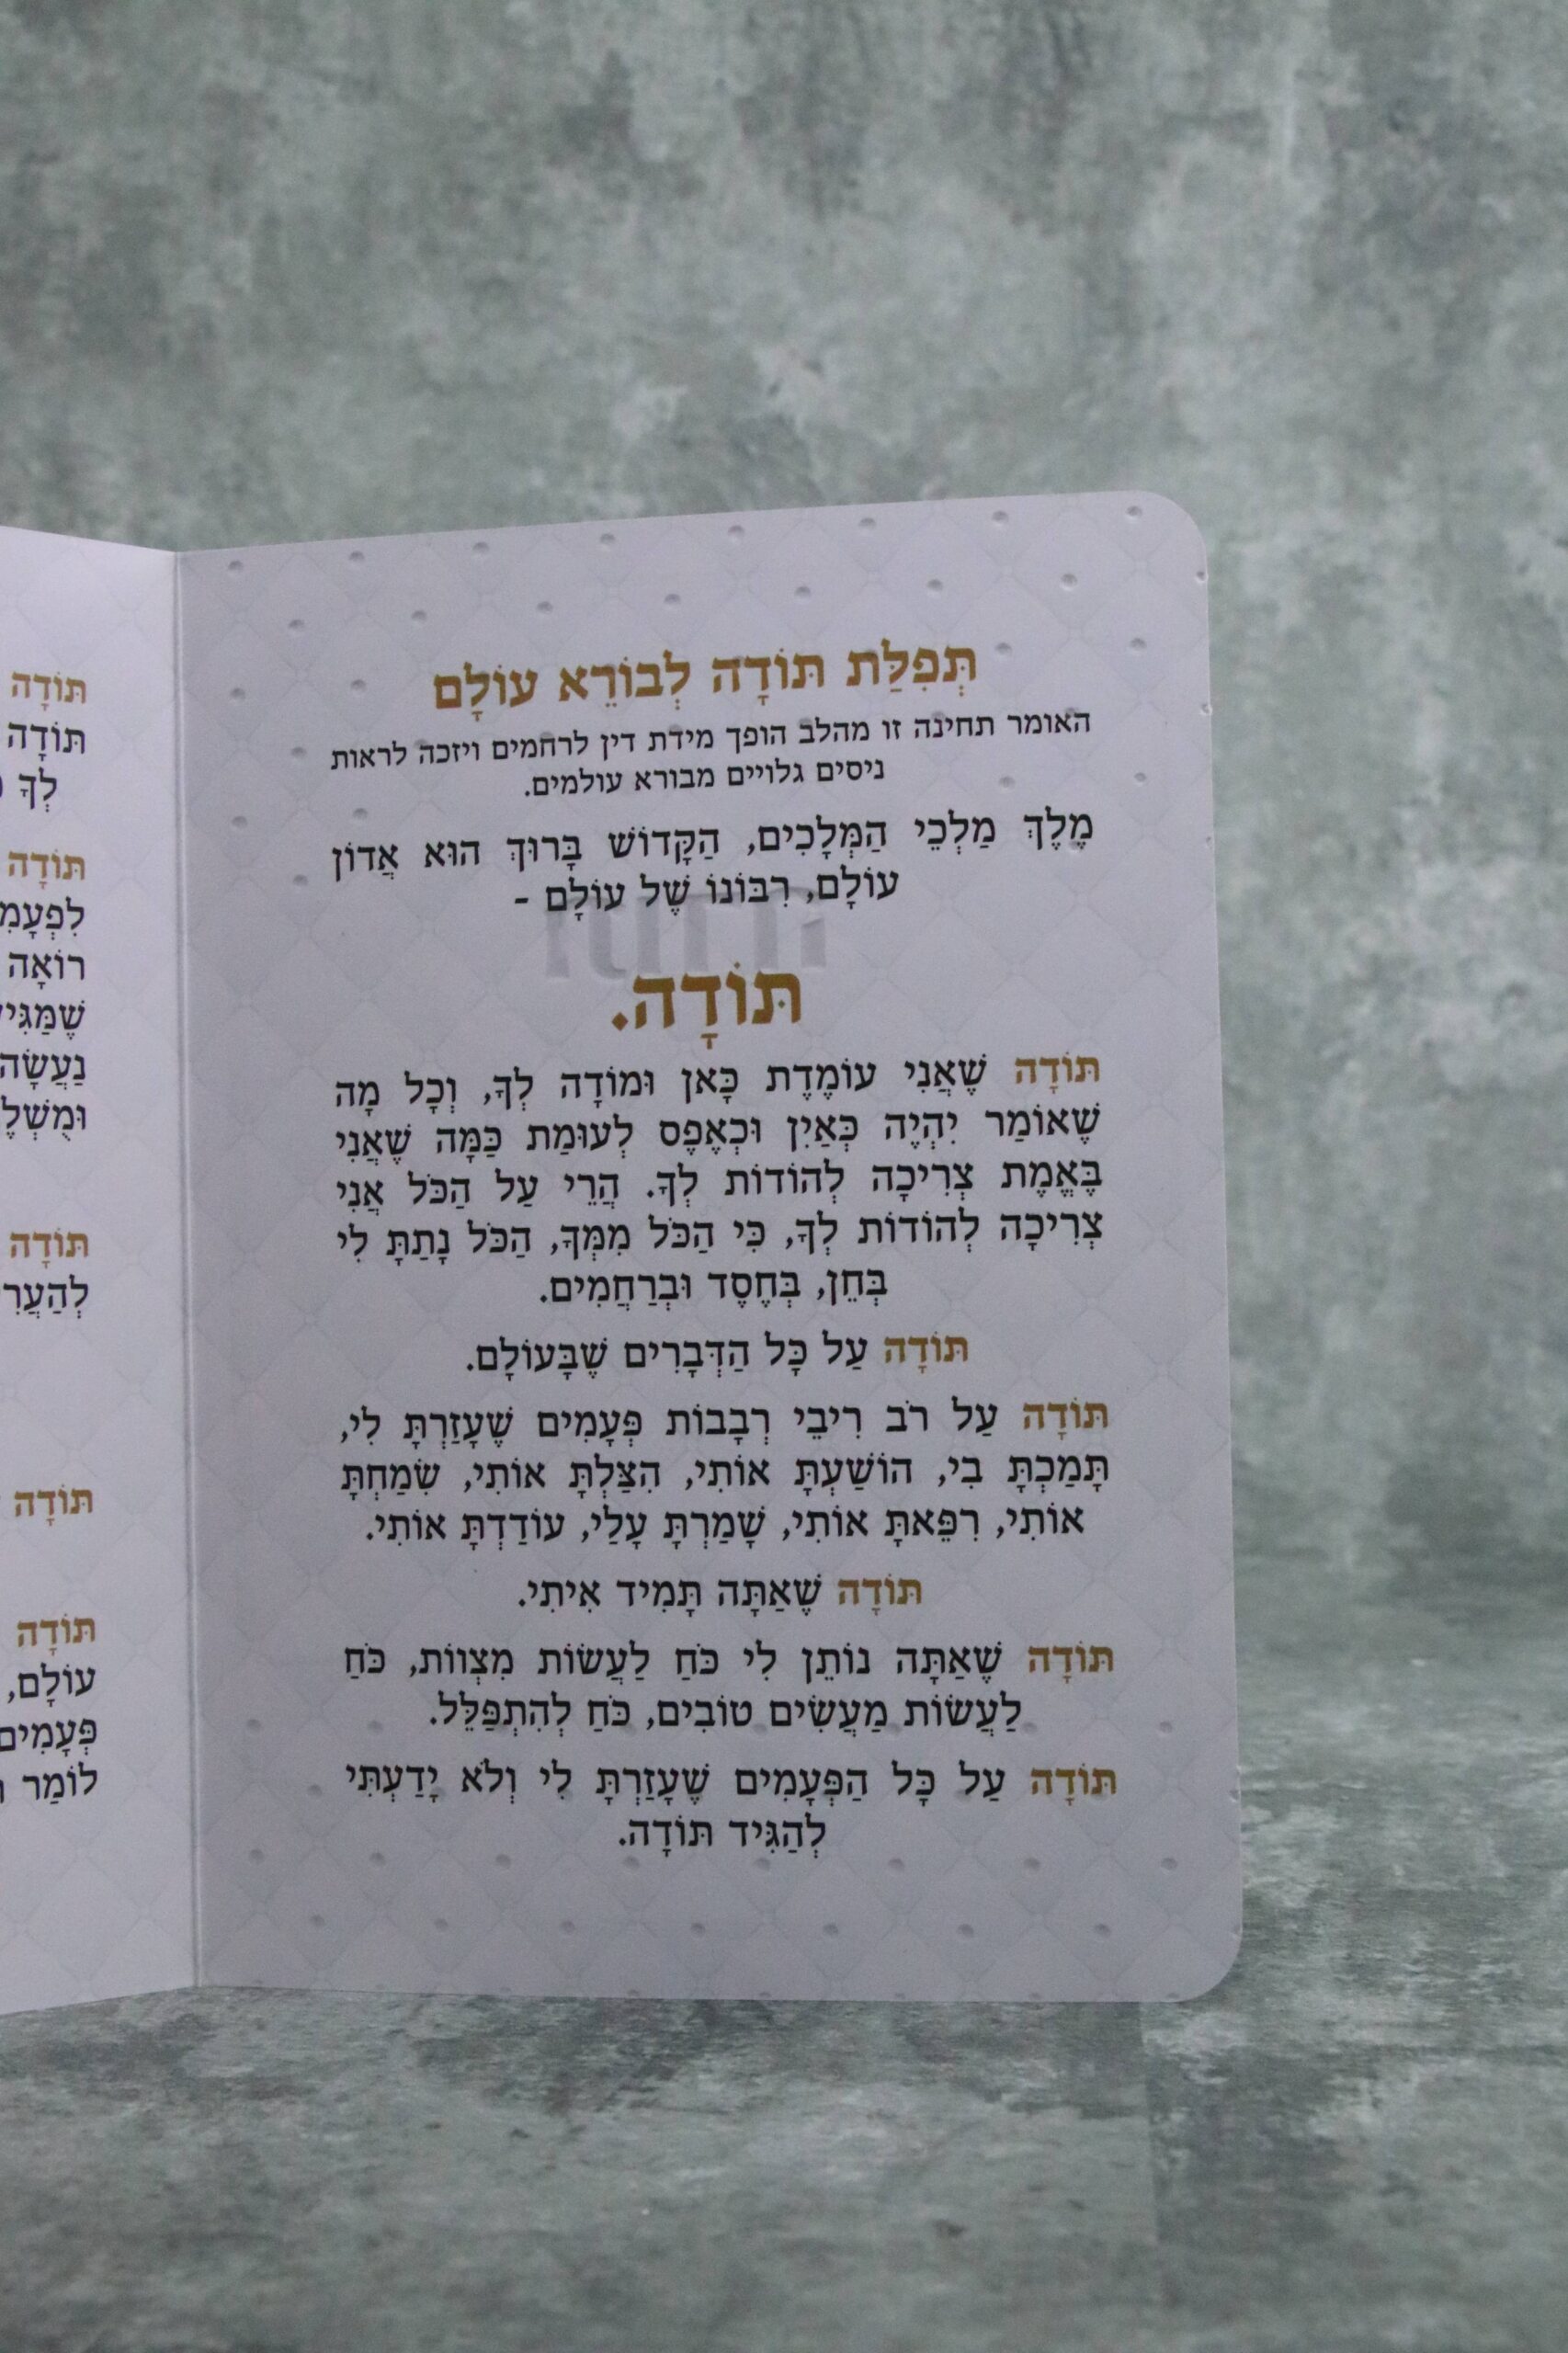 תְּפִלַּת תּוֹדָה לְבוֹרֵא עוֹלָם
האומר תחינה זו מהלב הופך מידת דין לרחמים ויזכה לראות
ניסים גלויים מבורא עולמים.
מֶלֶךְ מַלְכֵי הַמְּלָכִים, הַקָּדוֹשׁ בָּרוּךְ הוּא אֲדוֹן
עוֹלָם, רִבּוֹנוֹ שֶׁל עוֹלָם -
תּוֹדָה.
תּוֹדָה שֶׁאֲנִי עוֹמֶדֶת כָּאן וּמוֹדָה לְךָ, וְכָל מָה
שֶׁאוֹמַר יִהְיֶה כְּאַיִן וּכְאֶפֶס לְעוּמַת כַּמָּה שֶׁאֲנִי
בֶּאֱמֶת צְרִיכָה לְהוֹדוֹת לְךָ. הֲרֵי עַל הַכֹּל אֲנִי
צְרִיכָה לְהוֹדוֹת לְךָ, כִּי הַכֹּל מִמְּךָ, הַכֹּל נָתַתָּ לִי
בְּחֵן, בְּחֶסֶד וּבְרַחֲמִים.
תּוֹדָה עַל כָּל הַדְּבָרִים שֶׁבָּעוֹלָם.
תּוֹדָה עַל רֹב רִיבֵי רְבָבוֹת פְּעָמִים שֶׁעָזַרְתָּ לִי,
תָּמַכְתָּ בִי, הוֹשַׁעְתָּ אוֹתִי, הִצַּלְתָּ אוֹתִי, שִׂמַחְתָּ
אוֹתִי, רִפֵּאתָּ אוֹתִי, שָׁמַרְתָּ עָלַי, עוֹדַדְתָּ אוֹתִי.
תּוֹדָה שֶׁאַתָּה תָּמִיד אִיתִי.
תּוֹדָה שֶׁאַתָּה נוֹתֵן לִי כֹּחַ לַעֲשׂוֹת מִצְווֹת, כֹּחַ
לַעֲשׂוֹת מַעֲשִׂים טוֹבִים, כֹּחַ לְהִתְפַּלֵּל.
תּוֹדָה עַל כָּל הַפְּעָמִים שֶׁעָזַרְתָּ לִי וְלֹא יָדַעְתִּי
לְהַגִּיד תּוֹדָה.
תּוֹדָה
תּוֹדָה
לְךָ
תּוֹדָה
רוֹאָה
נַעֲשָׂה
תּוֹדָה
תּוֹדָה
תּוֹדָה
עוֹלָם,
פְּעָמִים
לוֹמַר